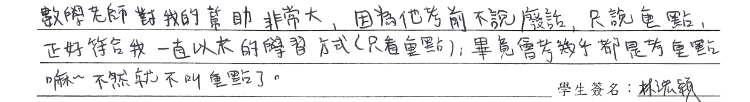 數學老師對我的幫助非常大，因為他考前不說廢話，只說重點，
正好符合我一直以來的學習方式(只看重點)；畢竟會考幾乎都是考重點
嘛~不然就不叫重點了。
學生簽名：林